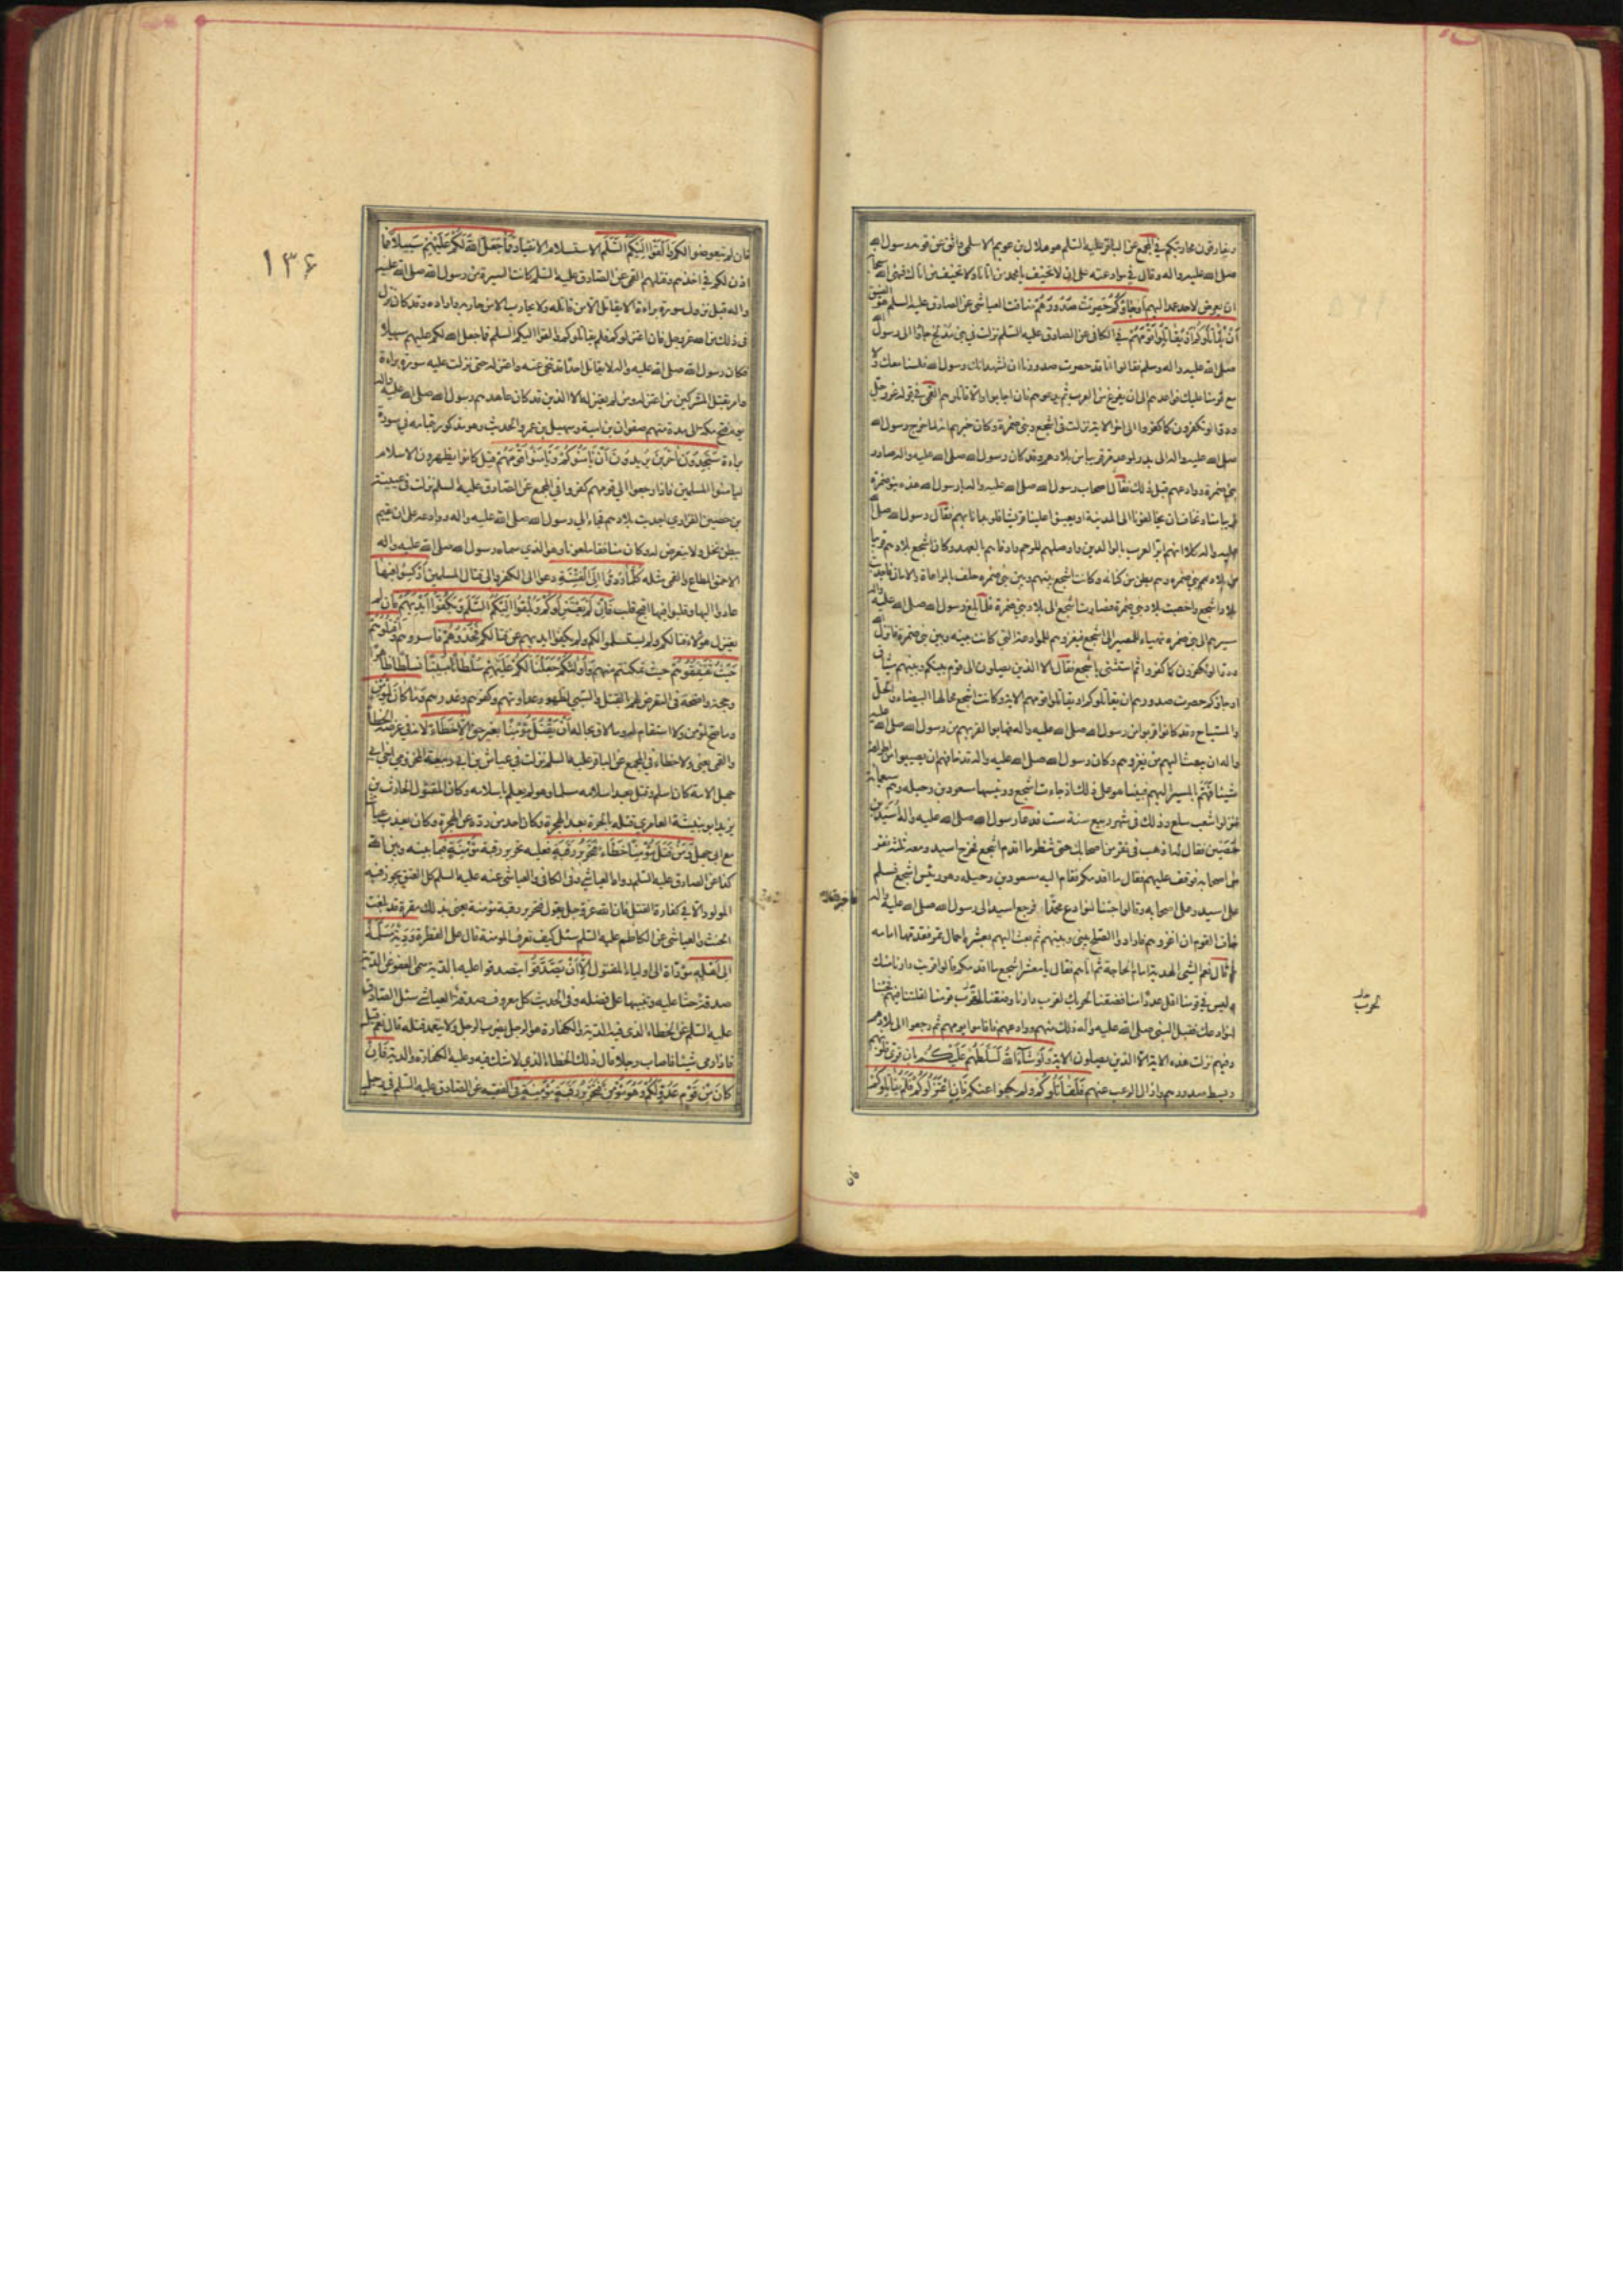 ويفارقون محاربتكم في المجمع عن الباقر عليه السلم هو هلال بن عويم الاسلمي واثق عن قومه رسول الله
صلى الله عليه واله وقال في موادعته على ان لا تحيف يا محمد من اتانا ولا نحيف من اتاك فنهى الله سبحانه
ان يعرض لاحد عهد اليهم أوجاؤكم حصرت صدورهم ضاقت العياشي عن الصادق عليه السلم هو الضيق
أن يقاتلوكم أو يقاتلوا قومهم في الكافي عن الصادق عليه السلم نزلت في بني مدلج جاؤا الى رسول الله
صلى الله عليه واله وسلم فقالوا انا قد حصرت صدورنا ان نشهد انك رسول الله فلسنا معك ولا
مع قومنا عليك فواعدهم الى ان يفرغ من العرب ثم يدعوهم فان اجابوا والا قاتلهم القمي في قوله عز وجل
ودوا لو تكفرون كما كفروا الى اخر الاية نزلت في اشجع وبني ضمرة وكان خبرهم انه لما خرج رسول الله
صلى الله عليه واله الى بدر لموعد مر قريبا من بلادهم وقد كان رسول الله صلى الله عليه واله صادر
بني ضمرة ووادعهم قبل ذلك فقال اصحاب رسول الله صلى الله عليه واله يا رسول الله هذه بنو ضمرة
قريبا منا ونخاف ان يخالفونا الى المدينة او يعينوا علينا قريشا فلو بدانا بهم فقال رسول الله صلى الله
عليه واله كلا انهم ابر العرب بالوالدين واوصلهم للرحم واوفاهم بالعهد وكان اشجع بلادهم قريبا
من بلاد بني ضمرة وهم بطن من كنانة وكانت اشجع بينهم وبين بني ضمرة حلف بالمراعاة والامان فاجدبت
بلاد اشجع واخصبت بلاد بني ضمرة فصارت اشجع الى بلاد بني ضمرة فلما بلغ رسول الله صلى الله عليه واله
مسيرهم الى بني ضمره تهياء للمصير الى اشجع فيغزوهم للموادعة التي كانت بينه وبين بني ضمرة فانزل الله
ودوا لو تكفرون كما كفروا ثم استثنى باشجع فقال الا الذين يصلون الى قوم بينكم وبينهم ميثاق
او جاؤكم حصرت صدورهم ان يقاتلوكم او يقاتلوا قومهم الاية وكانت اشجع محالها البيضاء والحل
والمستباح وقد كانوا قربوا من رسول الله صلى الله عليه واله فهابوا لقربهم من رسول الله صلى الله عليه
واله ان يبعث اليهم من يغزوهم وكان رسول الله صلى الله عليه واله قد خافهم ان يصيبوا من اطرافه
شيئا فهم بالمسير اليهم فبينما هو على ذلك اذ جاءت اشجع ورئيسها مسعود بن رجيله وهم سبعمائة
فنزلوا شعب سلع وذلك في شهر ربيع سنة ست فدعا رسول الله صلى الله عليه واله اسيد بن
حصين فقال له اذهب في نفر من اصحابك حتى تنظر ما اقدم اشجع فخرج اسيد ومعه ثلثة نفر
من اصحابه فوقف عليهم فقال ما اقدمكم فقام اليه مسعود بن رجيله وهو رئيس اشجع فسلم
على اسيد وعلى اصحابه وقالوا جئنا لنوادع محمدا فرجع اسيد الى رسول الله صلى الله عليه واله
خاف القوم ان اغزوهم فارادوا الصلح بيني وبينهم ثم بعث اليهم بعشرة احمال تمر فقدمها امامه
ثم قال نعم الشيء الهدية امام الحاجة ثم اتاهم فقال يا معشر اشجع ما اقدمكم قالوا قربت دارنا منك
وليس في قومنا اقل عددا منا فضقنا لحربك لقرب دارنا وضقنا لحرب قومنا لقلتنا فيهم فجئنا
لنوادعك فقبل النبي صلى الله عليه واله ذلك منهم ووادعهم فاقاموا يومهم ثم رجعوا الى بلادهم
وفيهم نزلت هذه الاية الا الذين يصلون الاية ولو شآء الله لسلطهم عليكم بان قوى قلوبهم
وبسط صدورهم وازال الرعب عنهم فلقاتلوكم ولم يكفوا عنكم فإن اعتزلوكم فلم يقاتلوكم
لحرب
فان
١٣۶
فان لم يتعرضوا لكم وألقوا إليكم السلم الاستسلام والانقياد فما جعل الله لكم عليهم سبيلا فما
اذن لكم في اخذهم وقتلهم القمي عن الصادق عليه السلم كانت السيرة من رسول الله صلى الله عليه
واله قبل نزول سورة براءة الا يقاتل الا من قاتله ولا يحارب الا من حاربه واراده وقد كان نزل
في ذلك من الله عز وجل فان اعتزلوكم فلم يقاتلوكم والقوا اليكم السلم فما جعل الله لكم عليهم سبيلا
فكان رسول الله صلى الله عليه واله لا يقاتل احدا قد تنحى عنه واعتزله حتى نزلت عليه سورة براءة
وامر بقتل المشركين من اعتزله ومن لم يعتزله الا الذين قد كان عاهدهم رسول الله صلى الله عليه واله
يوم فتح مكة الى مدة منهم صفوان بن امية وسهيل بن عمرو الحديث وهو مذكور بتمامه في سورة
براءة ستجدون آخرين يريدون أن يأمنوكم ويأمنوا قومهم قيل كانوا يظهرون الاسلام
ليامنوا المسلمين فاذا رجعوا الى قومهم كفروا في المجمع عن الصادق عليه السلم نزلت في عيينة
بن حصين الفزاري اجدبت بلادهم فجاء الى رسول الله صلى الله عليه واله ووادعه على ان يقيم
ببطن نخل ولا يتعرض له وكان منافقا ملعونا وهو الذي سماه رسول الله صلى الله عليه واله
الاحمق المطاع والقمي مثله كلما ردوا إلى الفتنة دعوا الى الكفر والى قتال المسلمين أركسوا فيها
عادوا اليها وقلبوا فيها اقبح قلب فإن لم يعتزلوكم ويلقوا إليكم السلم ويكفوا أيديهم فان لم
يعتزل هؤلاء قتالكم ولم يستسلموا لكم ولم يكفوا ايديهم عن قتالكم فخذوهم فاسروهم واقتلوهم
حيث ثقفتموهم حيث تمكنتم منهم وأولئكم جعلنا لكم عليهم سلطانا مبينا تسلطا ظاهرا
وحجة واضحة في التعرض لهم بالقتل والسبي لظهور عداوتهم وكفرهم وغدرهم وما كان لمؤمن
وما صح لمؤمن ولا استقام له وما لاق بحاله أن يقتل مؤمنا بغير حق إلا خطاء لانه في عرضة الخطا
والقمي يعني ولا خطاء في المجمع عن الباقر عليه السلم نزلت في عياش بن ابي ربيعة المخزومي اخي ابي
جهل لامه كان اسلم وقتل بعد اسلامه مسلما وهو لم يعلم باسلامه وكان المقتول الحارث بن
يزيد ابو نبيشة العامري قتله بالحرة بعد الهجرة وكان احد من رده عن الهجرة وكان يعذب عياشا
مع ابي جهل ومن قتل مؤمنا خطاء فتحرير رقبة فعليه تحرير رقبة مؤمنة فيما بينه وبين الله
كذا عن الصادق عليه السلم رواه العياشي وفي الكافي والعياشي عنه عليه السلم كل العتق يجوز فيه
المولود الا في كفارة القتل فان الله عز وجل يقول فتحرير رقبة مؤمنة يعني بذلك مقرة قد بلغت
الحنث والعياشي عن الكاظم عليه السلم سئل كيف تعرف المؤمنة قال على الفطرة ودية مسلمة
إلى أهله مؤداة الى اولياء المقتول إلا أن يصدقوا يتصدقوا عليه بالدية سمى العفو عن الدية
صدقة حثا عليه وتنبيها على فضله وفي الحديث كل معروف صدقة العياشي سئل الصادق
عليه السلم عن الخطاء الذي فيه الدية والكفارة هو الرجل يضرب الرجل ولا يتعمد قتله قال نعم قيل
فاذا رمى شيئا فاصاب رجلا قال ذلك الخطاء الذي لا شك فيه وعليه الكفارة والدية فإن
كان من قوم عدو لكم وهو مؤمن فتحرير رقبة مؤمنة في الفقيه عن الصادق عليه السلم في رجل